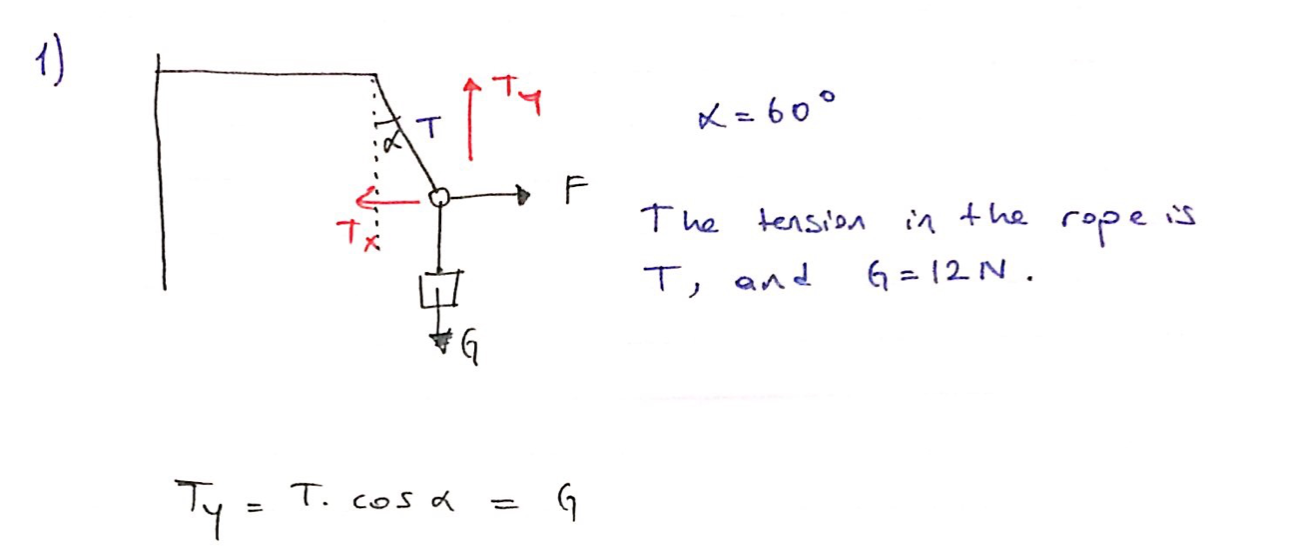 1)
Ty
α
T
Tx
F
G
α = 60°
The tension in the rope is
T, and G = 12 N.
Ty = T. cos α = G